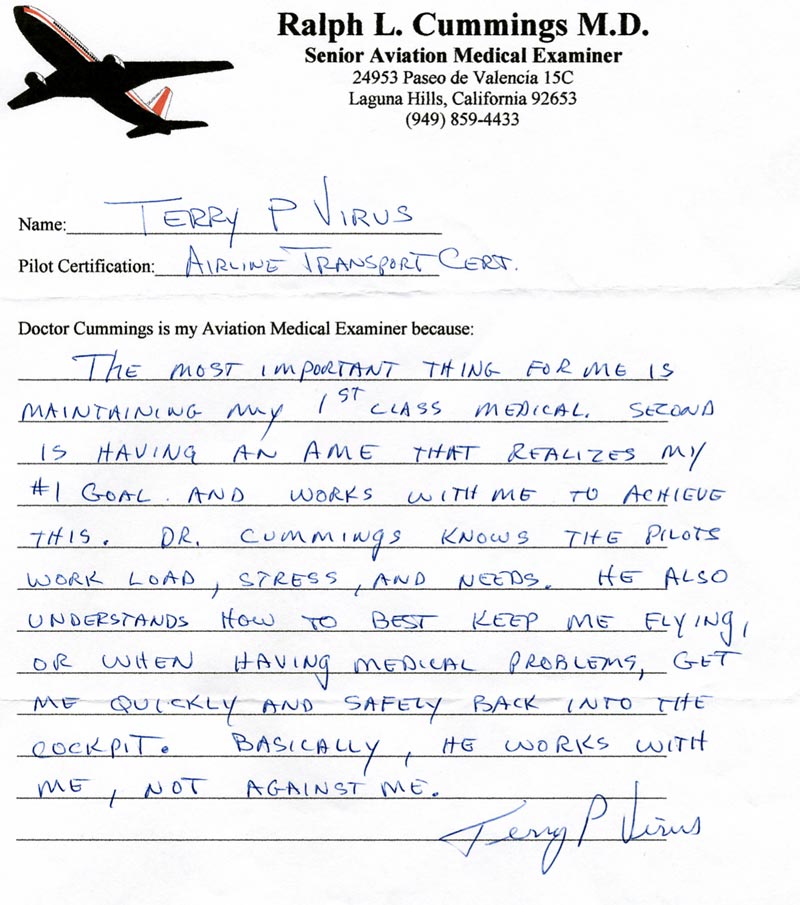 Ralph L. Cummings M.D.
Senior Aviation Medical Examiner
24953 Paseo de Valencia 15C
Laguna Hills, California 92653
(949) 859-4433
Name: TERRY P VIRUS
Pilot Certification: AIRLINE TRANSPORT CERT.
Doctor Cummings is my Aviation Medical Examiner because:
THE MOST IMPORTANT THING FOR ME IS
MAINTAINING MY 1ST CLASS MEDICAL. SECOND
IS HAVING AN AME THAT REALIZES MY
#1 GOAL. AND WORKS WITH ME TO ACHIEVE
THIS. DR. CUMMINGS KNOWS THE PILOTS
WORK LOAD, STRESS, AND NEEDS. HE ALSO
UNDERSTANDS HOW TO BEST KEEP ME FLYING,
OR WHEN HAVING MEDICAL PROBLEMS, GET
ME QUICKLY AND SAFELY BACK INTO THE
COCKPIT. BASICALLY, HE WORKS WITH
ME, NOT AGAINST ME.
Terry P Virus